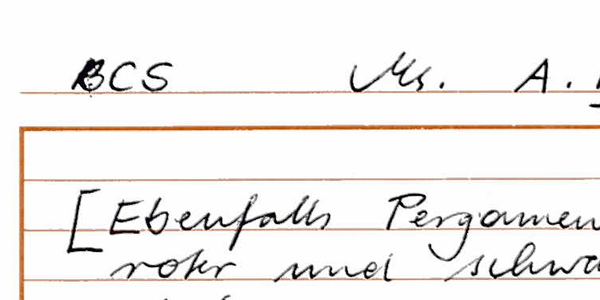 BCS Ms. A.
[Ebenfalls Pergamen
roter und schwa